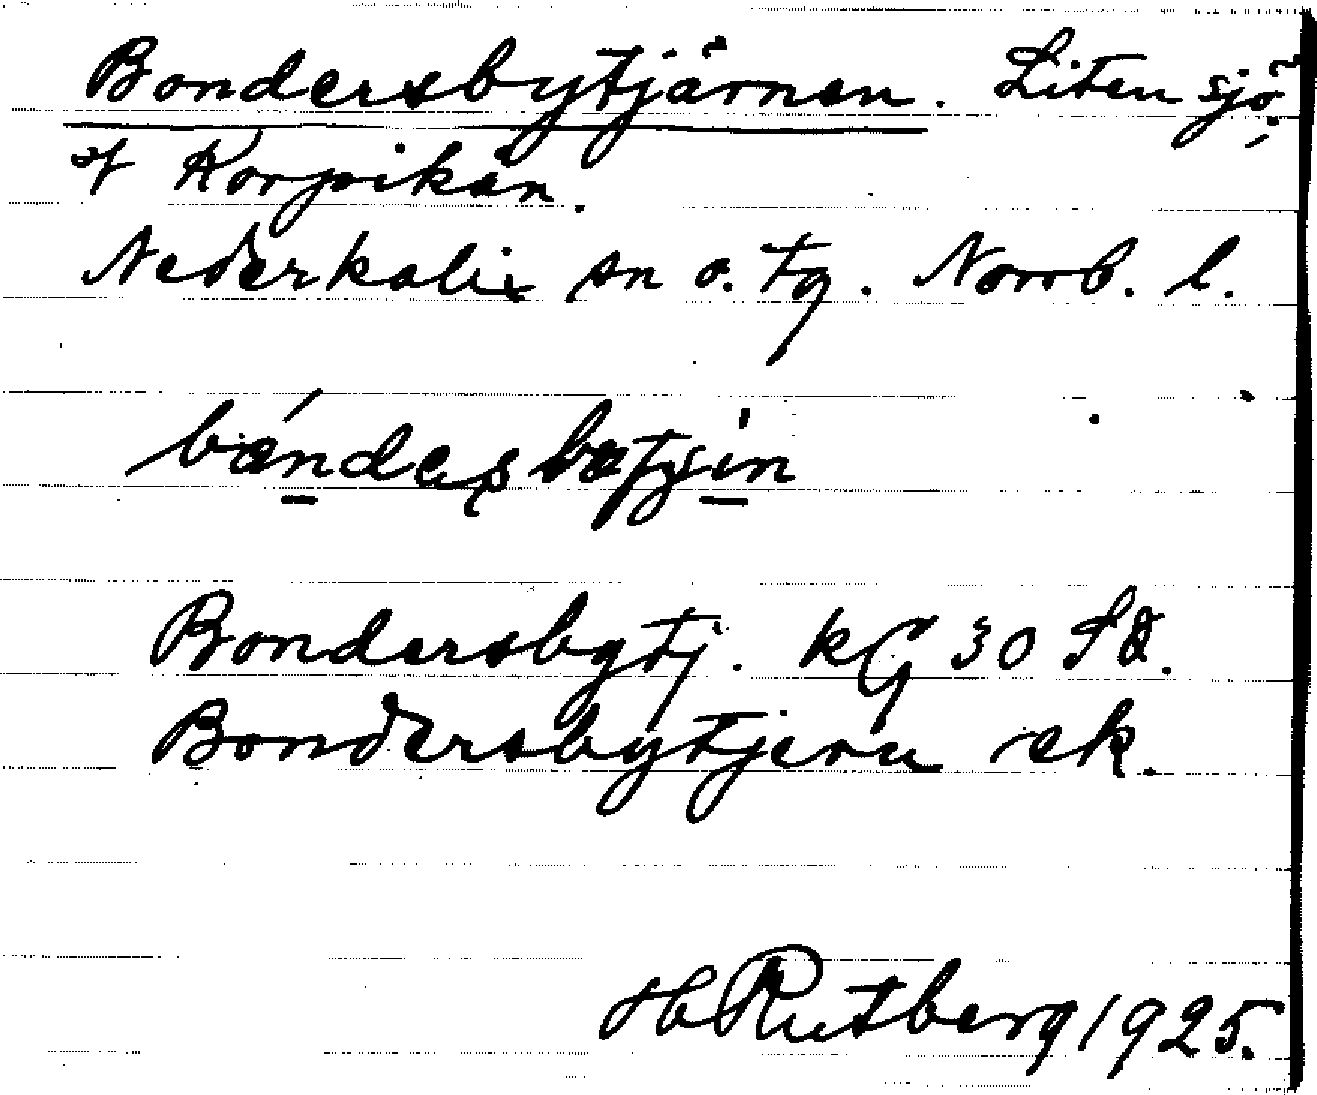 Bondersbytjärnen. Liten sjö,
af Korpikån.
Nederkalix sn o. tg. Norrb. l.
Bondersbytj. kG 30 SÖ.
Bondersbytjern ek.
H Rutberg 1925.